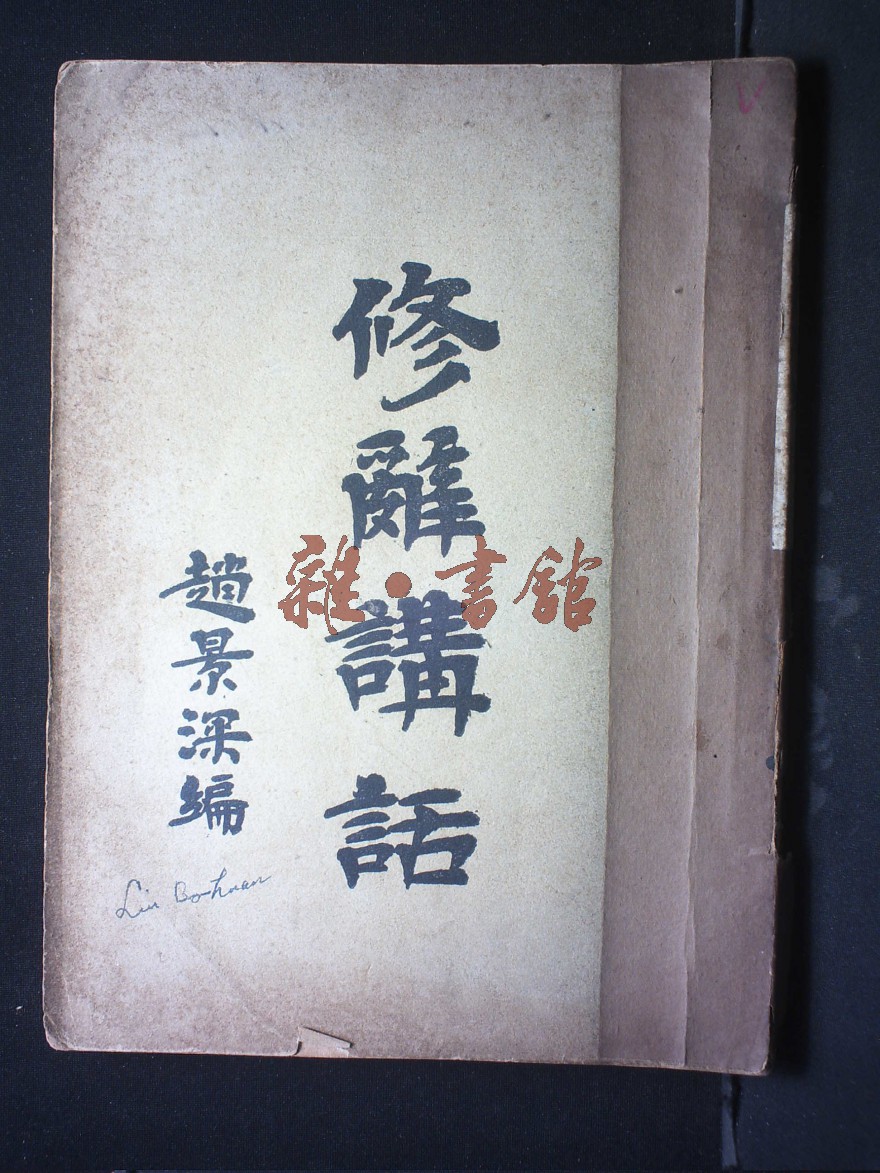 修辭講話
趙景深編
雜•書館
Liu Bo-huan